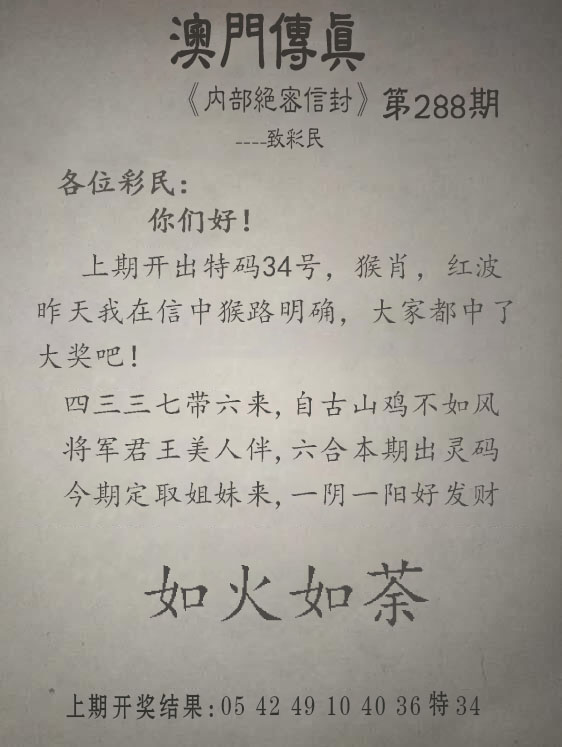 澳門傳真
《内部絕密信封》第288期
----致彩民
各位彩民：
你们好！
上期开出特码34号，猴肖，红波
昨天我在信中猴路明确，大家都中了
大奖吧！
四三三七带六来,自古山鸡不如风
将军君王美人伴,六合本期出灵码
今期定取姐妹来,一阴一阳好发财
如火如荼
上期开奖结果:05 42 49 10 40 36 特34